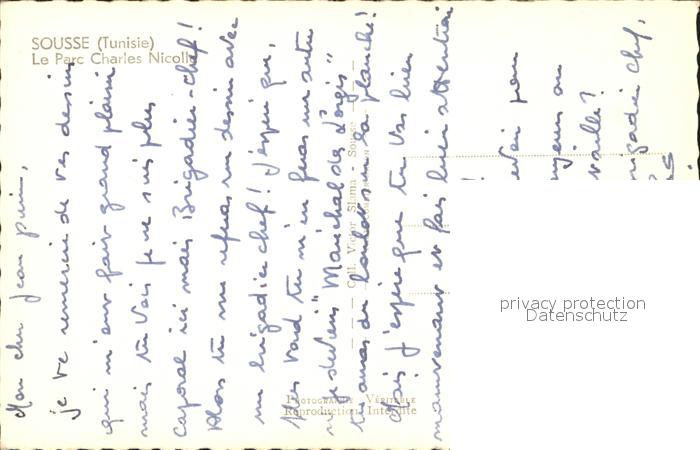 SOUSSE (Tunisie)
Le Parc Charles Nicolle
Mon cher Jean
je te remercie de tes dessins
qui m'ont fait grand plaisir
mais tu vois je ne suis plus
caporal ici mais Brigadier-chef!
Alors tu me referas un dessin avec
un brigadier chef! J'espère que,
plus tard tu m'en feras un autre
je deviens "Maréchal des Logis"
tu auras du sur la planche!
Mais j'espère que tu vas bien
maintenant et fais bien attention
Coll. Victor Slama - Sousse
PHOTOGRAPHIE VÉRITABLE
Reproduction Interdite
privacy protection
Datenschutz